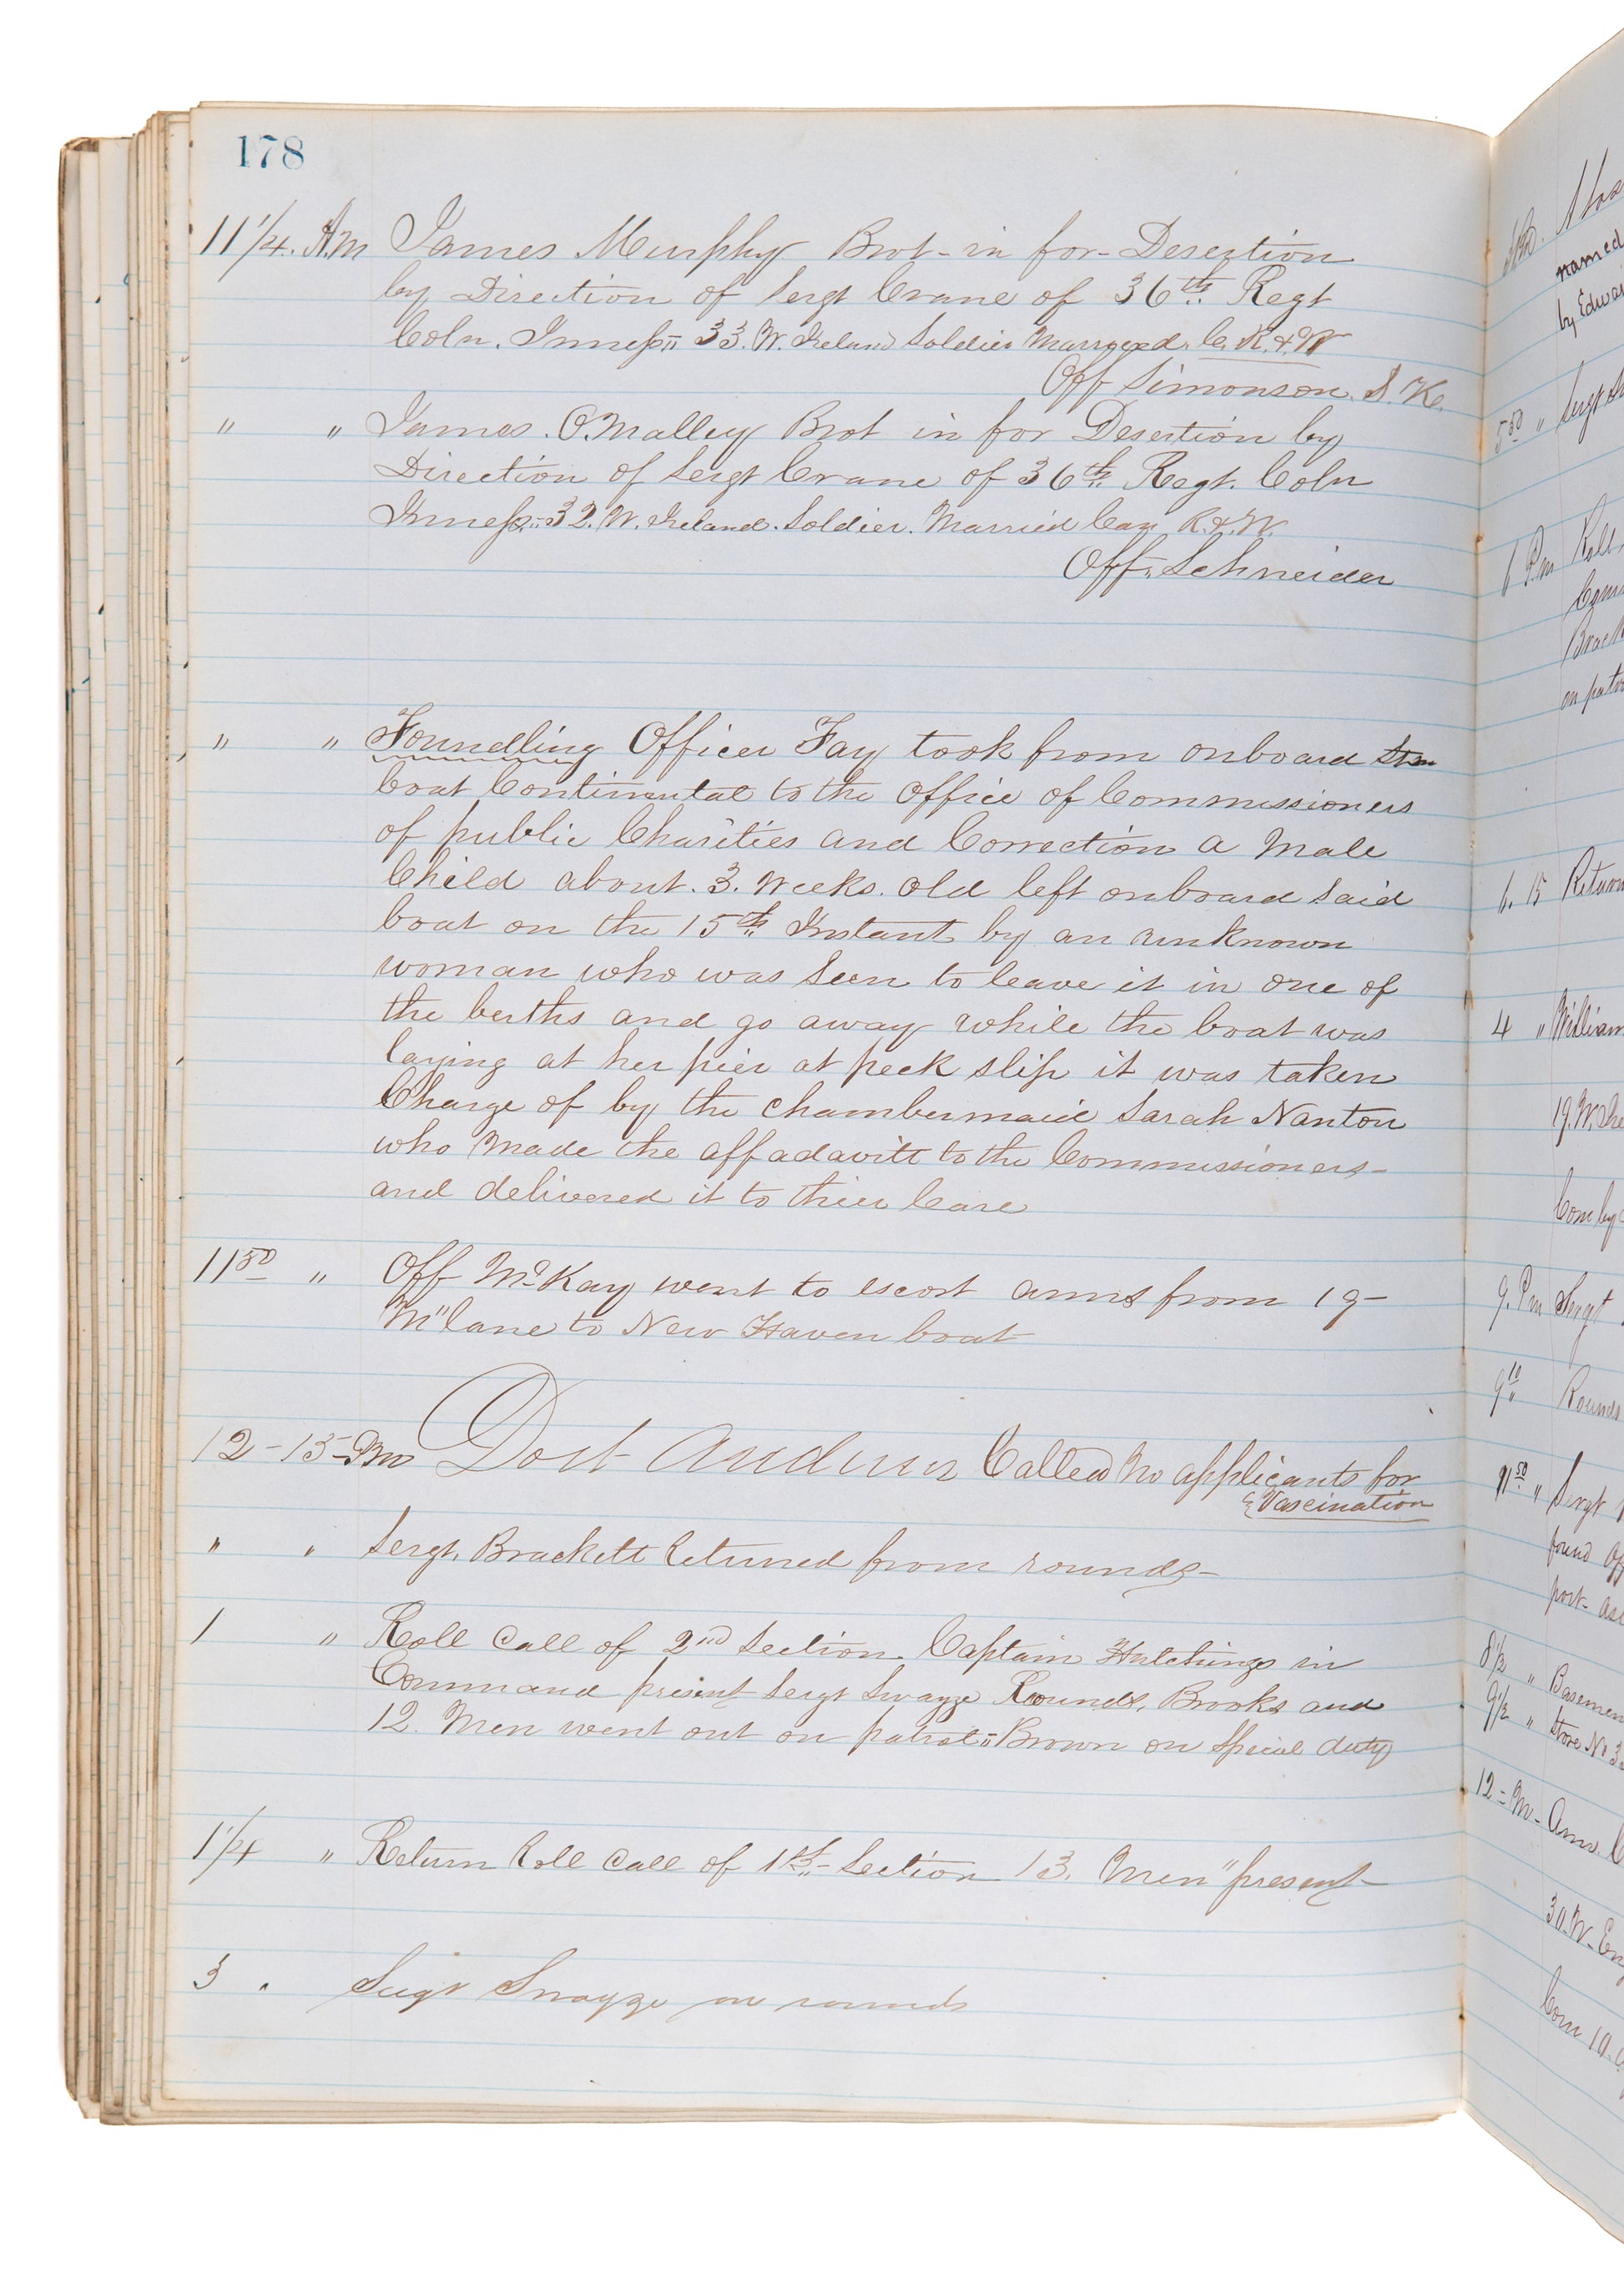 178
11 1/4. A.M James Murphy Brot-in for-Desertion
by Direction of Sergt Crane of 36th Regt
Coln. Inness 33. W. Ireland Soldier Marryed. C. R. & W
Off Simonson. S. K.
" " James. O.Malley Brot in for Desertion by
Direction of Sergt Crane of 36th Regt. Coln
Inness 32. W. Ireland. Soldier. Married Can R. & W.
Off. Schneider
" " Foundling Officer Fay took from onboard
boat Continental to the office of Commissioners
of public Charities and Correction a Male
Child about. 3. Weeks. old left onboard Said
boat on the 15th Instant by an unknown
woman who was Seen to leave it in one of
the berths and go away while the boat was
laying at her pier at peck slip it was taken
Charge of by the Chambermaid Sarah Nanton
who Made the affadavitt to the Commissioners-
and delivered it to thier Care
11 50 " Off McKay went to escort arms from 19-
M" lane to New Haven boat
12-15-Pm Doct Called No applicants for
Vascination
" " Sergt. Brackett Returned from rounds-
1 " Roll Call of 2nd Section. Captain Hutchings in
Command present Sergt Swayze Rounds, Brooks and
12. Men went out on patrol Brown on Special duty
1 1/4 " Return Roll Call of 1st- Section 13. Men present-
3 " Sergt Swayze on rounds
named
by
5 50 " Sergt
6 Pm Roll
Brack
6. 15 Return
4 " William
19. W.
Com by
9. Pm Sergt
9 10 " Rounds
11 50 " Sergt
found
post-
8 1/2 "
9 1/2 " Store No 3
12-M-
30. W-
Com 10